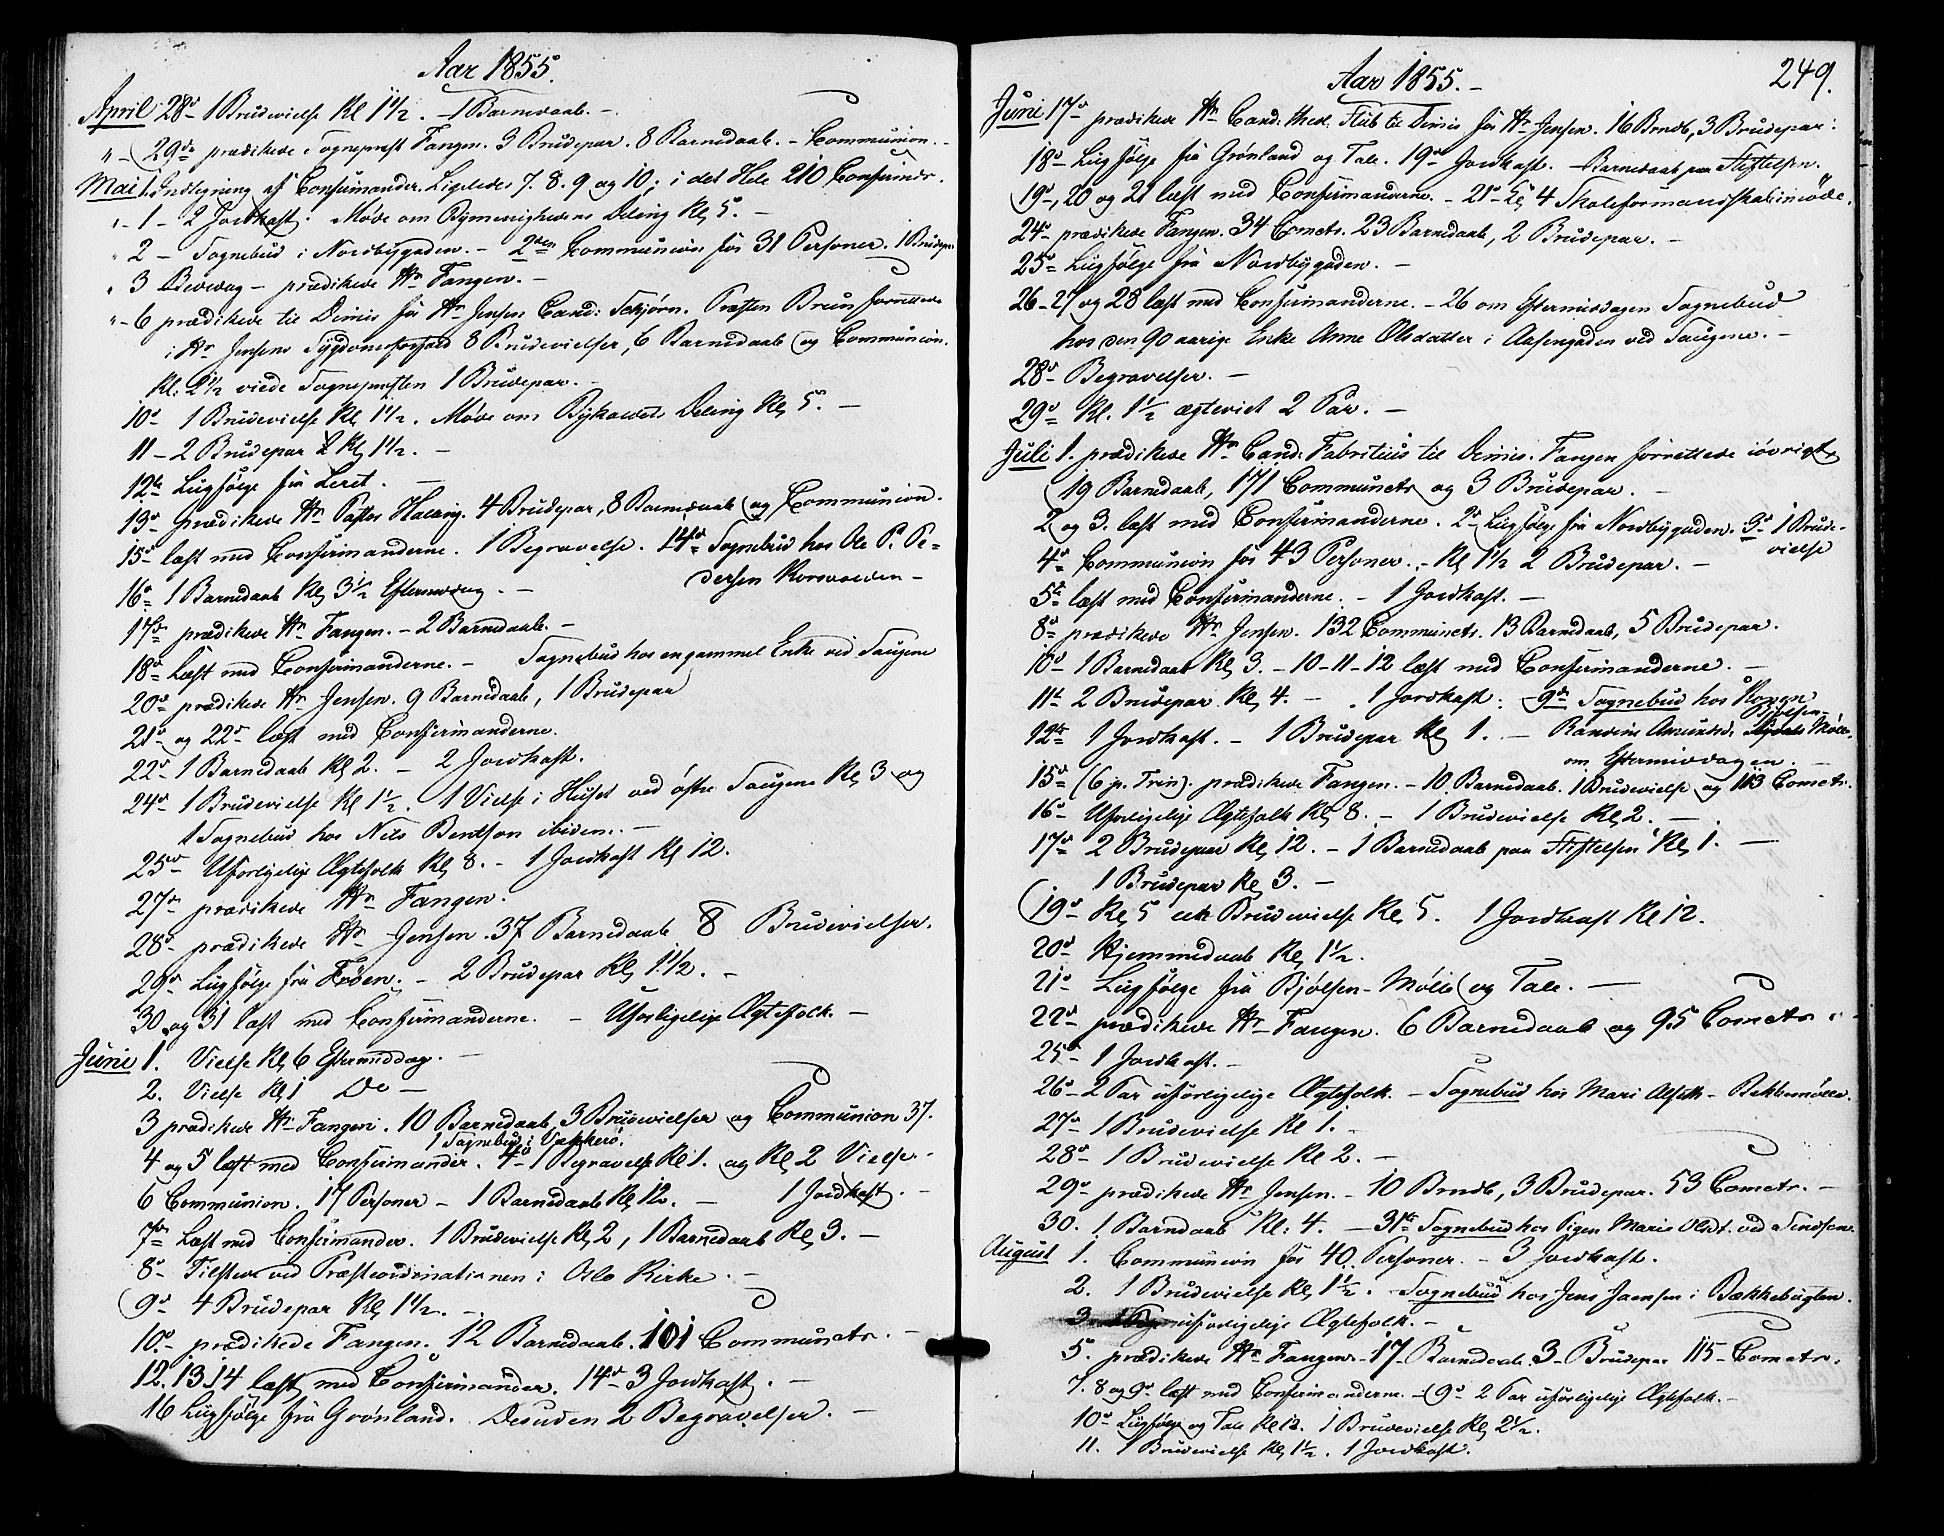 Aar 1855.
April 28d 1 Brudevielse Kl 1 1/2. - 1 Barnedaab. -
" - 29de prædikede Sognepræst Fangen. 3 Brudepar. 8 Barnedaab. - Communion. -
Mai 1. Indtegning af Confirmander. Ligeledes 7. 8. 9 og 10; i det Hele 210 Confirmdr.
" - 1 - 2 Jordkast. Møde om Deling Kl. 5. -
" 2 - Sognebud i Nordbygaden. - 2den Communion for 31 Personer. 1 Brudepar
" 3 Bededag - prædikede Hr. Fangen. -
" - 6 prædikede til Dimis for Hr Jensen Cand: Schjørn. Præsten Bruun forrettede
i Hr Jensens Sygdomsforfald 8 Brudevielser, 6 Barnedaab og Communion.
Kl. 2 1/2 viede Sognepræsten 1 Brudepar. -
10d 1 Brudevielse Kl 1 1/2. Møde om Deling Kl. 5. -
11 - 2 Brudepar Kl 1 1/2. -
12te Liigfølge fra Leret. -
13d prædikede Hr Pastor Halling. 4 Brudepar, 8 Barnedaab og Communion.
15d læst med Confirmanderne. 1 Begravelse. 14d Sognebud hos Ole P. Pe-
dersen Korsvolden -
16d 1 Barnedaab Kl 3 1/2 Eftermiddag. -
17de prædikede Hr Fangen. - 2 Barnedaab. -
18d Læst med Confirmanderne. - Sognebud hos en gammel Enke ved Saugene
20d prædikede Hr Jensen. 9 Barnedaab, 1 Brudepar
21d og 22d læst med Confirmanderne.
22d 1 Barnedaab Kl 2. - 2 Jordkast.
24d 1 Brudevielse Kl 1 1/2. 1 Vielse i Huset ved østre Saugene Kl 3 og
1 Sognebud hos Nils Bentson ibidem. -
25d Uforligelige Ægtefolk Kl 8. - 1 Jordkast Kl 12.
27d prædikede Hr Fangen.
28d prædikede Hr Jensen. 37 Barnedaab 8 Brudevielser.
29d Liigfølge fra Frøen. - 2 Brudepar Kl 1 1/2. -
30 og 31 læst med Confirmanderne. - Uforligelige Ægtefolk. -
Juni 1. Vielse Kl 6 Eftermiddag. -
2. Vielse Kl 1 Do -
3 prædikede Hr Fangen. 10 Barnedaab, 3 Brudevielser og Communion 37.
1 Sognebud i Vækkerø.
4 og 5 læst med Confirmander. 4d 1 Begravelse Kl 1. og Kl 2 Vielse. -
6 Communion. 17 Personer - 1 Barnedaab Kl 12. - 1 Jordkast. -
7de Læst med Confirmander. 1 Brudevielse Kl 2, 1 Barnedaab Kl 3. -
8d Tilstede ved Præsteordinationen i Oslo Kirke. -
9d 4 Brudepar Kl 1 1/2. -
10d prædikede Fangen. 12 Barnedaab. 101 Communcts. -
12. 13. 14 læst med Confirmander. 14d 3 Jordkast. -
16 Liigfølge fra Grønland. Desuden 2 Begravelser. -
Aar 1855. - 249.
Juni 17d prædikede Hr Cand: theol. til Dimis for Hr Jensen. 16 Brndb, 3 Brudepar.
18d Liigfølge fra Grønland og Tale. 19d Jordkast. - Barnedaab paa Stiftelsen.
19d, 20 og 21 læst med Confirmanderne. - 21d Kl. 4 Skoleformandskabsmøde.
24d prædikede Fangen. 34 Comcts. 23 Barnedaab, 2 Brudepar. -
25d Liigfølge fra Nordbygaden. -
26 - 27 og 28 læst med Confirmanderne. - 26 om Eftermiddagen Sognebud
hos den 90 aarige Enke Anne Olsdatter i Aasengaden ved Saugene. -
28d Begravelser. -
29d Kl. 1 1/2 ægteviet 2 Par. -
Juli 1. prædikede Hr Cand: Fabritius til Dimis. Fangen forrettede iøvrigt
19 Barnedaab, 171 Communcts og 3 Brudepar. -
2 og 3. læst med Confirmanderne. 2d Liigfølge fra Nordbygaden. 3d 1 Brude-
vielse
4d Communion for 43 Personer. - Kl 1 1/2 2 Brudepar. -
5te læst med Confirmanderne. - 1 Jordkast. -
8d prædikede Hr Jensen. 132 Communcts. 13 Barnedaab, 5 Brudepar.
10d 1 Barnedaab Kl 3. - 10-11-12 læst med Confirmanderne. -
11te 2 Brudepar Kl 4. - 1 Jordkast. - 9de Sognebud hos Konen
12te 1 Jordkast. - 1 Brudepar Kl 1. - Randine Amundsd. Bjølsen-Mølle
om Eftermiddagen. -
15d (6 p. Trin). prædikede Fangen. - 10 Barnedaab. 1 Brudevielse og 113 Comcts.
16d Uforligelige Ægtefolk Kl 8. - 1 Brudevielse Kl 2. -
17d 2 Brudepar Kl 12. - 1 Barnedaab paa Stiftelsen Kl 1. -
1 Brudepar Kl 3. -
19d Kl 5 Brudevielse Kl 5. 1 Jordkast Kl 12.
20d Hjemmedaab Kl 1 1/2.
21d Liigfølge fra Bjølsen-Mølle og Tale. -
22d prædikede Hr Fangen. 6 Barnedaab og 95 Comcts.
25d 1 Jordkast. -
26d 2 Par uforligelige Ægtefolk. - Sognebud hos Mari - Bakkemølle.
27d 1 Brudevielse Kl 1. -
28d 1 Brudevielse Kl 2. -
29d prædikede Hr Jensen. - 10 Brndb, 3 Brudepar. 53 Comcts. -
30. 1 Barndaab Kl: 4. - 31te Sognebud hos Pigen Maria Olsdt. ved Sindsen.
August 1. Communion for 40 Personer. - 3 Jordkast.
2. 1 Brudevielse Kl 1 1/2. - Sognebud hos Jens Jensen i Bækkebugten.
3. uforligelige Ægtefolk. -
5. prædikede Hr Fangen. - 17 Barnedaab. 3 - Brudepar 115 - Comcts.
7. 8 og 9d læst med Confirmanderne. - 9d 2 Par uforligelige Ægtefolk. -
10d Liigfølge og Tale Kl 12. 1 Brudevielse Kl 2 1/2.
11. 1 Brudevielse Kl 1 1/2. 1 Jordkast.